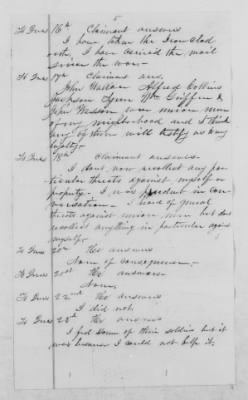 5
To Ques 16th Claimant answers
I have taken the Iron Clad
oath. I have carried the mail
since the war.
To Ques 17th Claimant ans.
John Wallace Alfred Collins
Jackson Lynn Wm Griffin &
John Wesson are union men
of my neighborhood and I think
any of them will testify as to my
loyalty.
To Ques 18th Claimant answers.
I dont now recollect any par
ticular threats against myself or
property. I was prudent in con
versation. I heard of general
threats against union men but dont
recollect anything in particular against
myself.
To Ques 20th He answers
None of consequence.
To Ques 21st He answers
None.
To Ques 22nd He answers
I did not.
To Ques 25th He answers
I fed some of their soldiers but it
was because I could not help it.